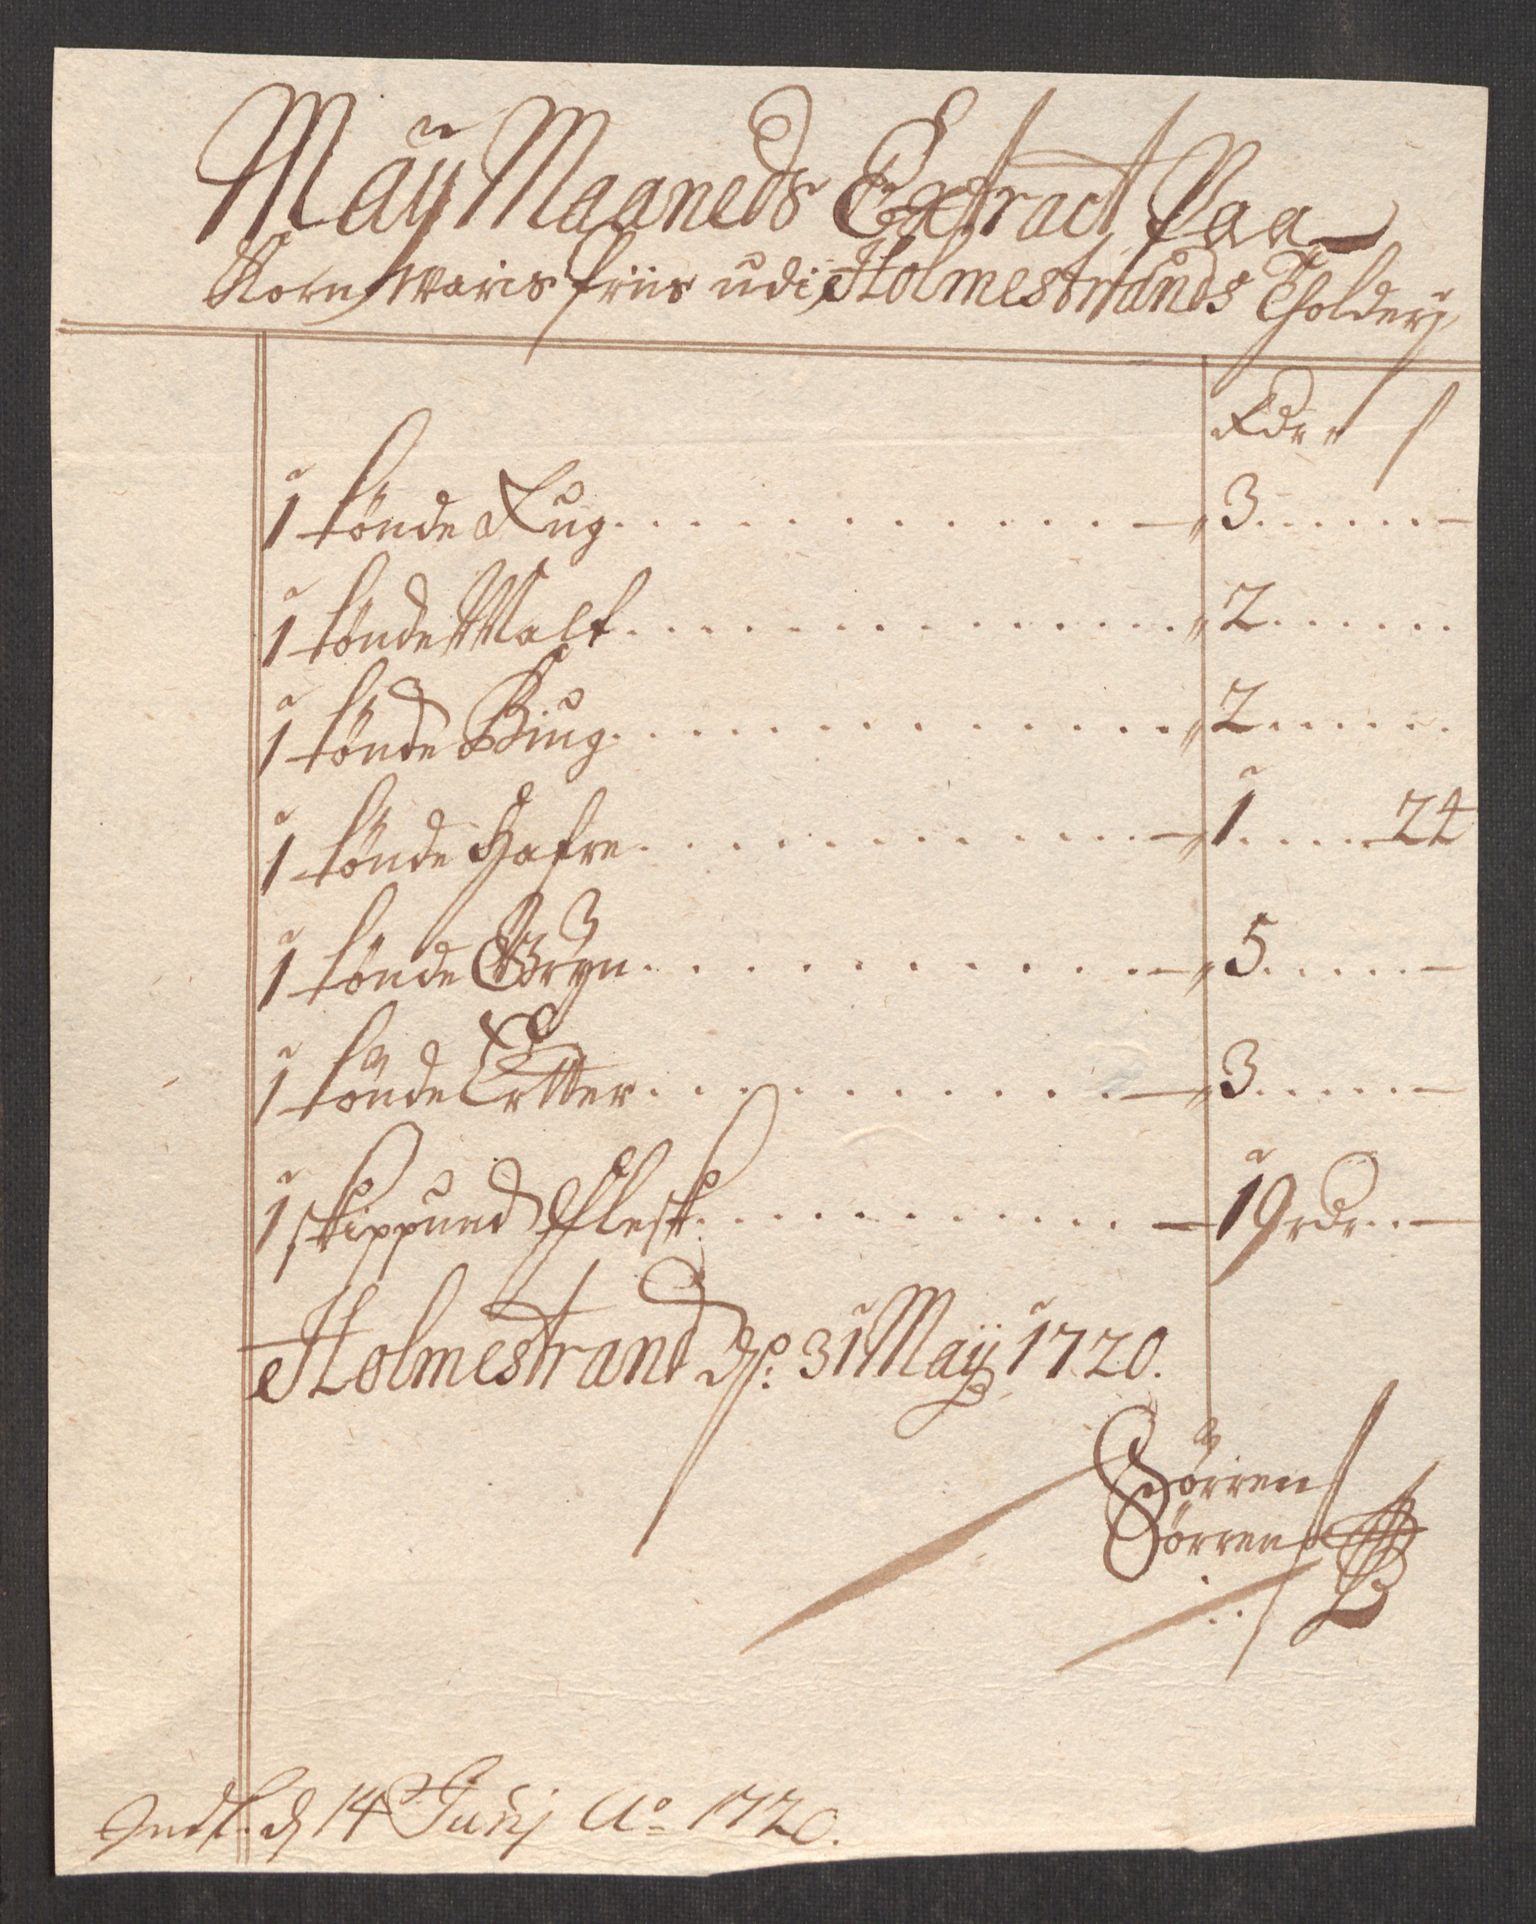 Maÿ Maaneds Extract Paa
Korn Waris Priis udi Holmestrands Tholderj
Rdr ſ
1 tönde Rug . . . . . . . . . . . . — 3 . . . . . . —
1 tönde Malt . . . . . . . . . . . . . . . 2 . . . . . .
1 tönde Biug . . . . . . . . . . . . . . . 2 . . . . . .
1 tönde Hafre . . . . . . . . . . . . — 1 . . . . . 24
1 tönde Gryn . . . . . . . . . . . . — 5 . . . . . —
1 tönde Ertter . . . . . . . . . . . — 3 . . . . . —
1 skippund Flesk . . . . . . . . . . . . — 19 rdr . . —
Holmestrand dſ: 31 Maÿ 1720.
Sörren
Sörrens
Indl. d 14 Junj Ao 1720.